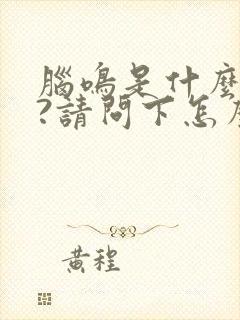 腦鳴是什麼
?請問下怎
黃程